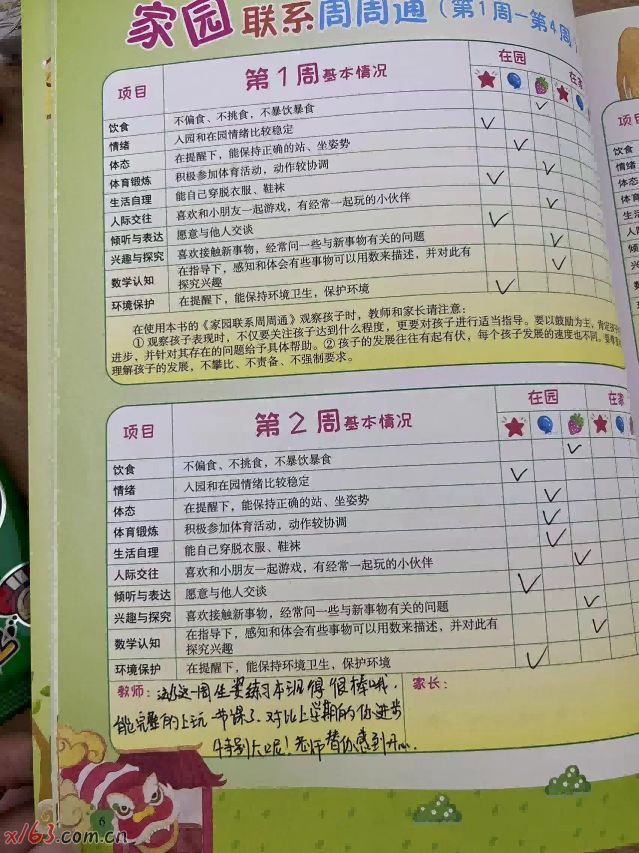 家园联系周周通(第1周-第4周
项目 第1周基本情况 在园 在家
饮食 不偏食、不挑食,不暴饮暴食
情绪 入园和在园情绪比较稳定
体态 在提醒下,能保持正确的站、坐姿势
体育锻炼 积极参加体育活动,动作较协调
生活自理 能自己穿脱衣服、鞋袜
人际交往 喜欢和小朋友一起游戏,有经常一起玩的小伙伴
倾听与表达 愿意与他人交谈
兴趣与探究 喜欢接触新事物,经常问一些与新事物有关的问题
数学认知 在指导下,感知和体会有些事物可以用数来描述,并对此有
探究兴趣
环境保护 在提醒下,能保持环境卫生,保护环境
在使用本书的《家园联系周周通》观察孩子时,教师和家长请注意:
①观察孩子表现时,不仅要关注孩子达到什么程度,更要对孩子进行适当指导。要以鼓励为主,肯定孩子
进步,并针对其存在的问题给予具体帮助。②孩子的发展往往有起有伏,每个孩子发展的速度也不同。
理解孩子的发展,不攀比、不责备、不强制要求。
项目 第2周基本情况 在园 在家
饮食 不偏食、不挑食,不暴饮暴食
情绪 入园和在园情绪比较稳定
体态 在提醒下,能保持正确的站、坐姿势
体育锻炼 积极参加体育活动,动作较协调
生活自理 能自己穿脱衣服、鞋袜
人际交往 喜欢和小朋友一起游戏,有经常一起玩的小伙伴
倾听与表达 愿意与他人交谈
兴趣与探究 喜欢接触新事物,经常问一些与新事物有关的问题
数学认知 在指导下,感知和体会有些事物可以用数来描述,并对此有
探究兴趣
环境保护 在提醒下,能保持环境卫生,保护环境
教师: 这一周坐姿练习本班得很棒哦, 家长:
能完整的上玩一节课了.对比上学期的你进步
特别大呢!老师替你感到开心.
6
x/63.com.cn
项目
饮食
情绪
体态
体育锻炼
生活自理
人际交往
倾听与表达
兴趣与探究
数学认知
环境保护